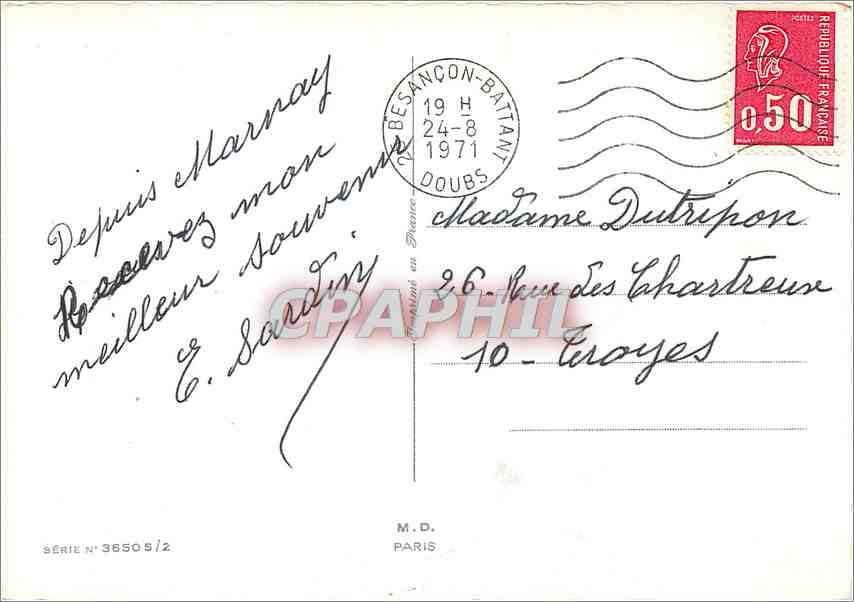 Depuis Marnay
Recevez mon
meilleur souvenir
E. Sardin
25 BESANÇON-BATTANT
19 H
24-8
1971
DOUBS
POSTES
REPUBLIQUE FRANÇAISE
0,50
Madame Dutripon
26 - Rue des Chartreux
10 - Troyes
Imprimé en France
CPAPHIL
M.D.
PARIS
SÉRIE N° 3650 S/2